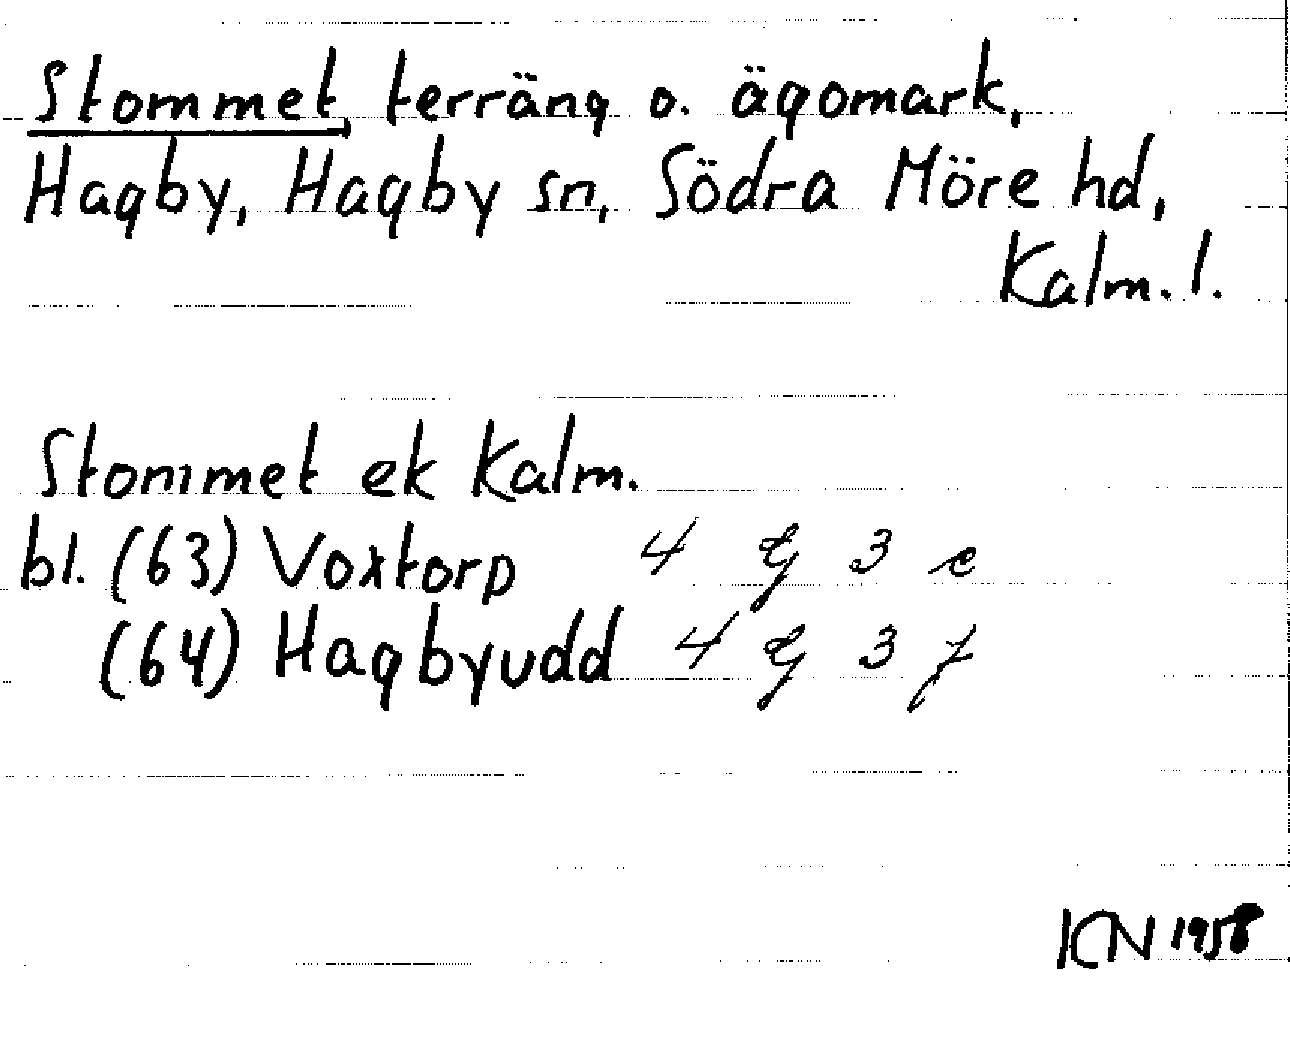 Stommet, terräng o. ägomark,
Hagby, Hagby sn, Södra Möre hd,
Kalm. l.
Stommet ek Kalm.
bl. (63) Voxtorp 4 G 3 e
(64) Hagbyudd 4 G 3 f
KN 1958